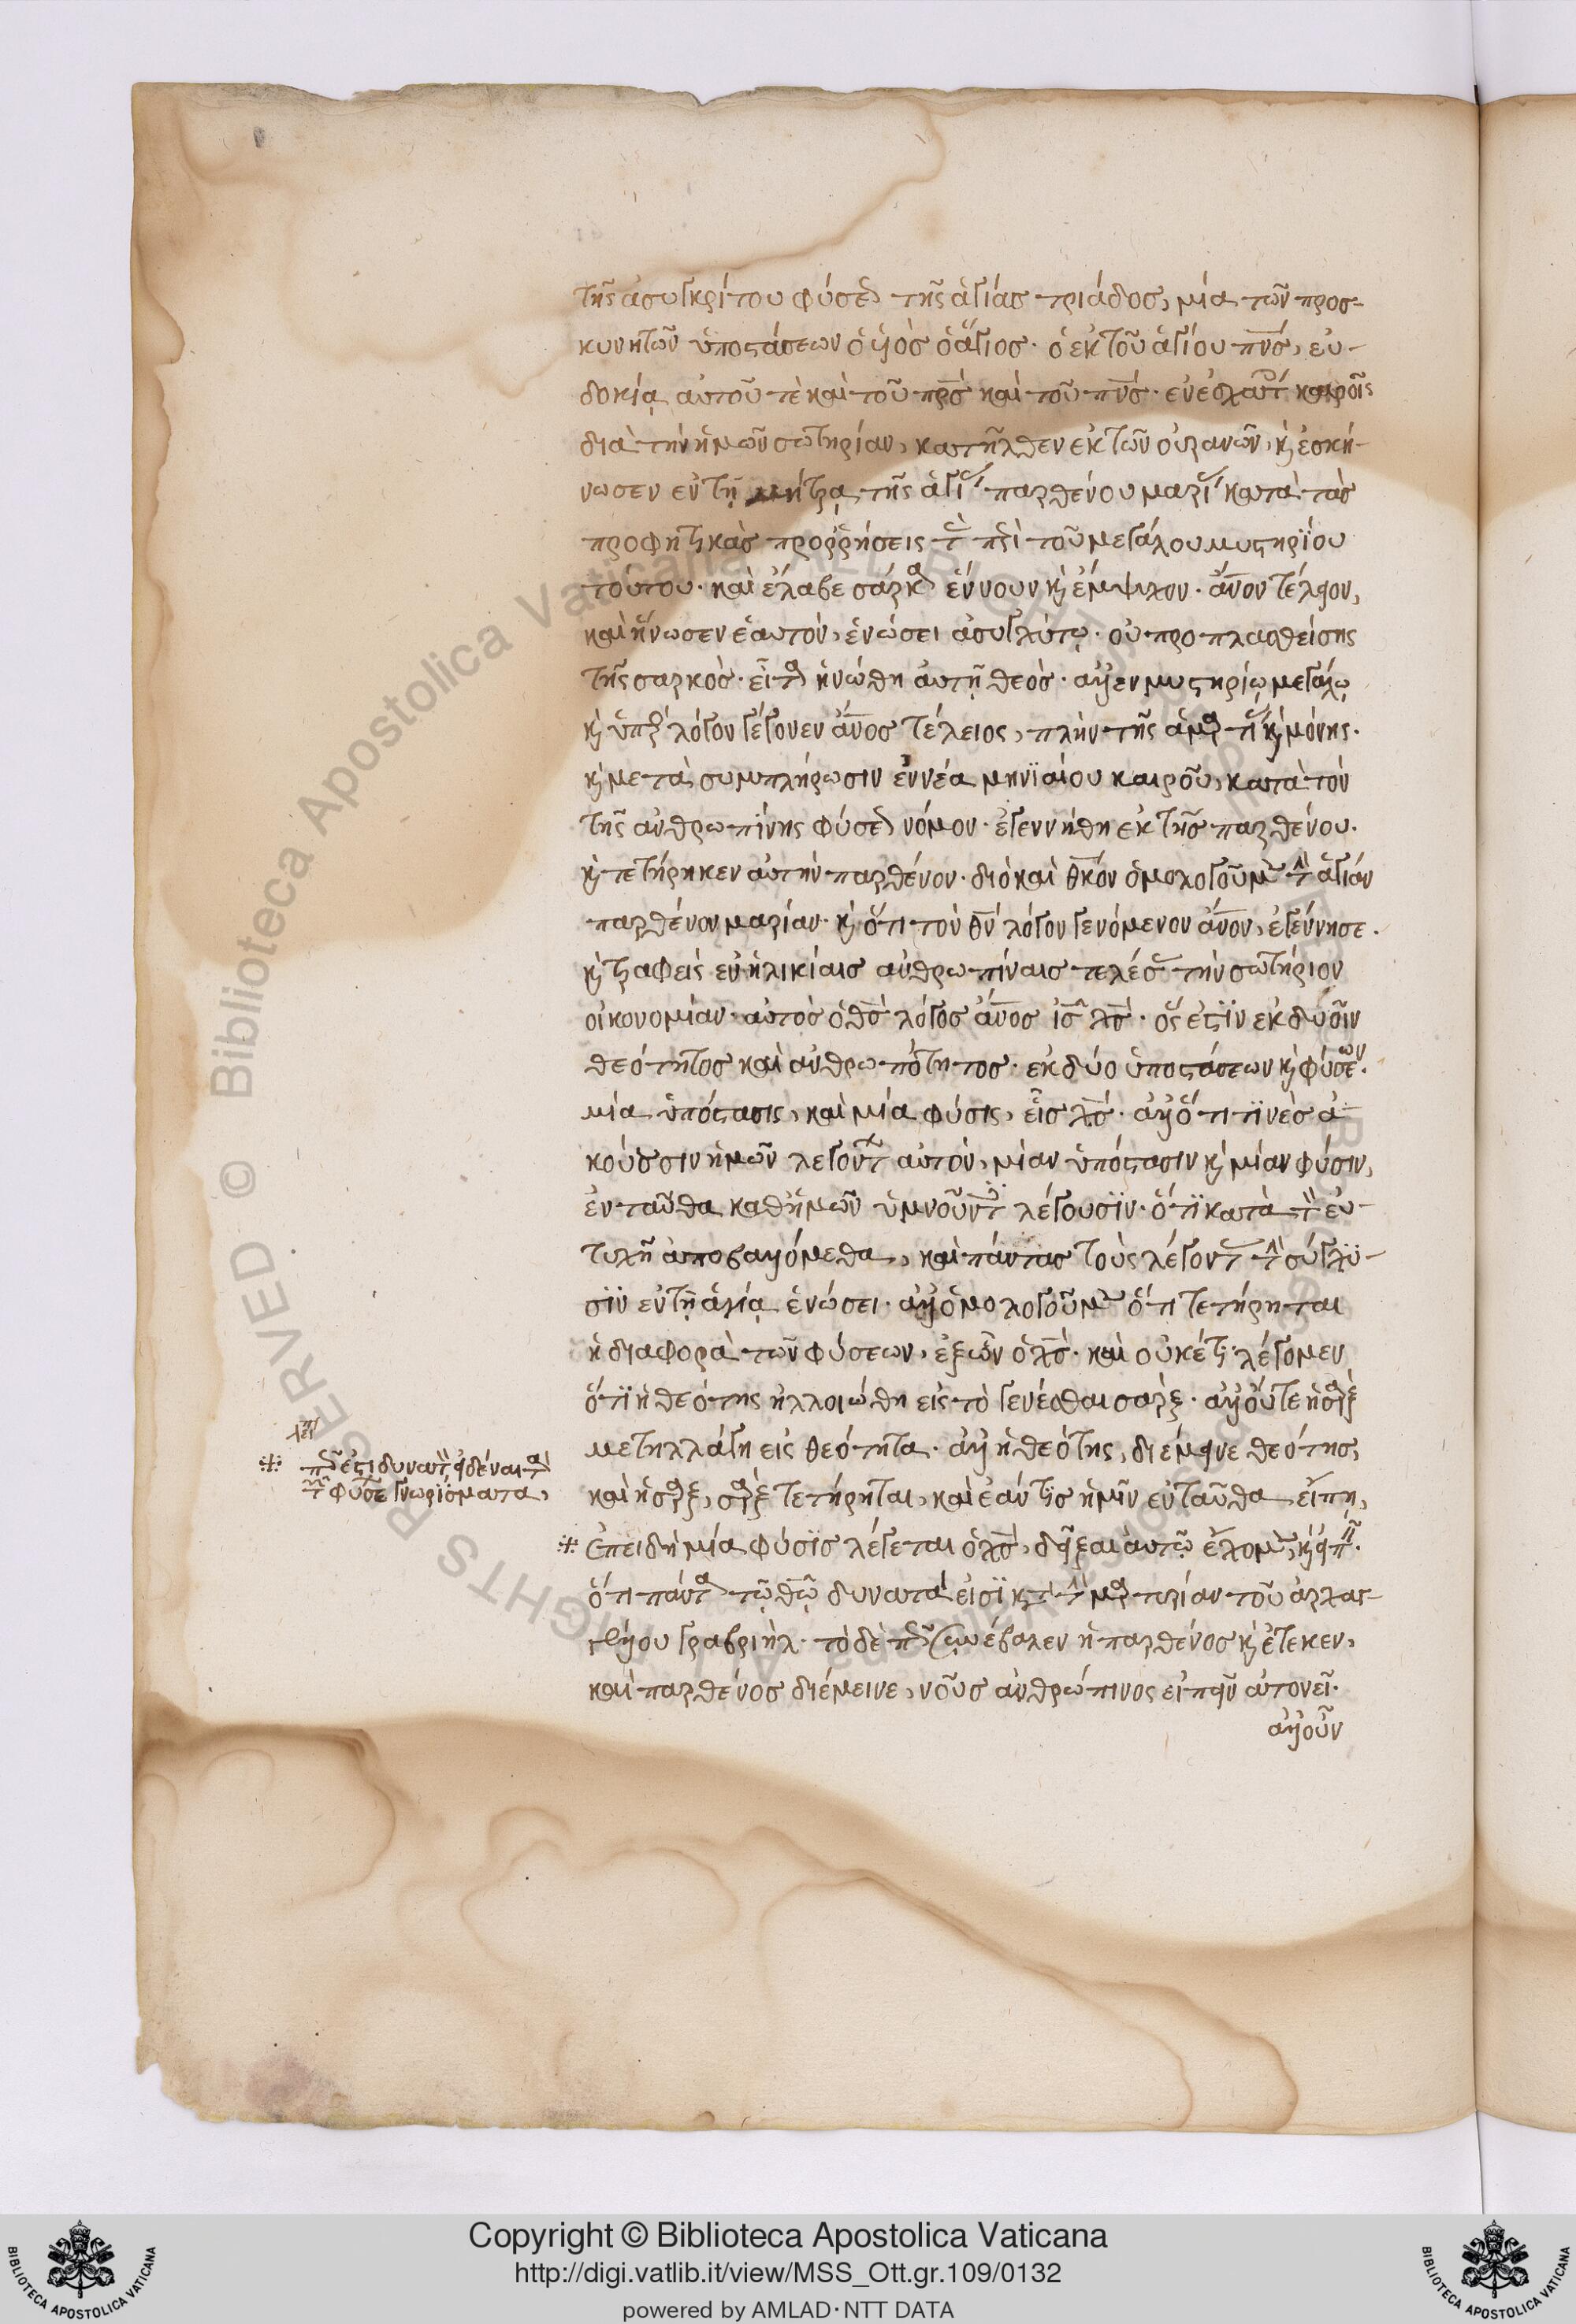 τῆς ἀσυγκρίτου φύσεως τῆς ἁγίας τριάδος, μία τῶν προσ-
κυνητῶν ὑποστάσεων ὁ υἱὸς ὁ ἅγιος· ὁ ἐκ τοῦ ἁγίου πνς, εὐ-
δοκίᾳ αὐτοῦ τὲ καὶ τοῦ πρς καὶ τοῦ πνς· ἐν ἐσχάτοις καιροῖς
διὰ τὴν ἡμῶν σωτηρίαν, κατῆλθεν ἐκ τῶν οὐρανῶν, κ ἐσκή-
νωσεν ἐν τῇ μήτρᾳ τῆς ἁγίας παρθένου μαρίας κατὰ τὰς
προφητικὰς προρρήσεις τὰς περὶ τοῦ μεγάλου μυστηρίου
τούτου· καὶ ἔλαβε σάρκα ἔννουν κ ἔμψυχον· ἄνον τέλειον,
καὶ ἥνωσεν ἑαυτὸν, ἑνώσει ἀσυγχύτῳ· οὐ προπλασθείσης
τῆς σαρκὸς· εἶτα ἡνώθη αὐτῇ θεός· ἀλλ' ἐν μυστηρίῳ μεγάλῳ
κ ὑπὲρ λόγον γέγονεν ἄνος τέλειος, πλὴν τῆς ἁμαρτίας κ μόνης.
κ μετὰ συμπλήρωσιν ἐννέα μηνϊαίου καιροῦ, κατὰ τὸν
τῆς ἀνθρωπίνης φύσεως νόμον· ἐγεννήθη ἐκ τῆς παρθένου.
κ τετήρηκεν αὐτὴν παρθένον· διὸ καὶ θκον ὁμολογοῦμεν τὴν ἁγίαν
παρθένον μαρίαν· κ ὅτι τὸν θν λόγον γενόμενον ἄνον, ἐγέννησε.
κ τραφεὶς ἐν ἡλικίαις ἀνθρωπίναις τελέσας τὴν σωτήριον
οἰκονομίαν· αὐτὸς ὁ θς λόγος ἄνος ις χς· ὅς ἐστϊν ἐκ δυοῖν
θεότητος καὶ ἀνθρωπότητος· ἐκ δύο ὑποστάσεων κ φύσεων.
μία ὑπόστασις, καὶ μία φύσις, εἷς χς· ἀλλ' ὅτι τϊνὲς ἀ-
κούουσιν ἡμῶν λεγόντων αὐτὸν, μίαν ὑπόστασιν κ μίαν φύσιν,
ἐνταῦθα καθ' ἡμῶν ὑμνοῦντες λέγουσϊν· ὅτϊ κατὰ τὸν εὐ-
τυχῆ ἀποβαλλόμεθα, καὶ πάντας τοὺς λέγοντας τὴν σύγχϋ-
σϊν ἐν τῇ ἁγίᾳ ἑνώσει· ἀλλ' ὁμολογοῦμεν ὅτι τετήρηται
ἡ διαφορὰ τῶν φύσεων, ἐξ ὧν ὁ χς· καὶ οὐκέτϊ λέγομεν
ὅτϊ ἡ θεότης ἠλλοιώθη εἰς τὸ γενέσθαι σάρξ· ἀλλ' οὔτε ἡ σάρξ
μετηλλάγη εἰς θεότητα· ἀλλ' ἡ θεότης, διέμεινε θεότης,
καὶ ἡ σάρξ, σάρξ τετήρηται, καὶ ἐάν τϊς ἡμῖν ἐνταῦθα εἴπῃ,
※ Ἐπειδὴ μία φύσϊς λέγεται ὁ χς, δεῖξαι αὐτῷ ἔχομεν, κ εἰπεῖν.
ὅτι πάντα τῷ θῷ δυνατά εἰσϊ κατὰ τὴν μαρτυρίαν τοῦ ἀρχαγ-
γέλου γαβριήλ· τὸ δὲ πῶς συνέλαβεν ἡ παρθένος κ ἔτεκεν,
καὶ παρθένος διέμεινε, νοῦς ἀνθρώπινος εἰπεῖν ἀτονεῖ.
ἀλλ' οὖν
※ πῶς ἐστι δυνατὸν εἰδέναι τὰ
τῶν φύσεων γνωρίσματα,
Copyright © Biblioteca Apostolica Vaticana
http://digi.vatlib.it/view/MSS_Ott.gr.109/0132
powered by AMLAD·NTT DATA
BIBLIOTECA APOSTOLICA VATICANA
BIBLIOTECA APOSTOLICA VATICANA